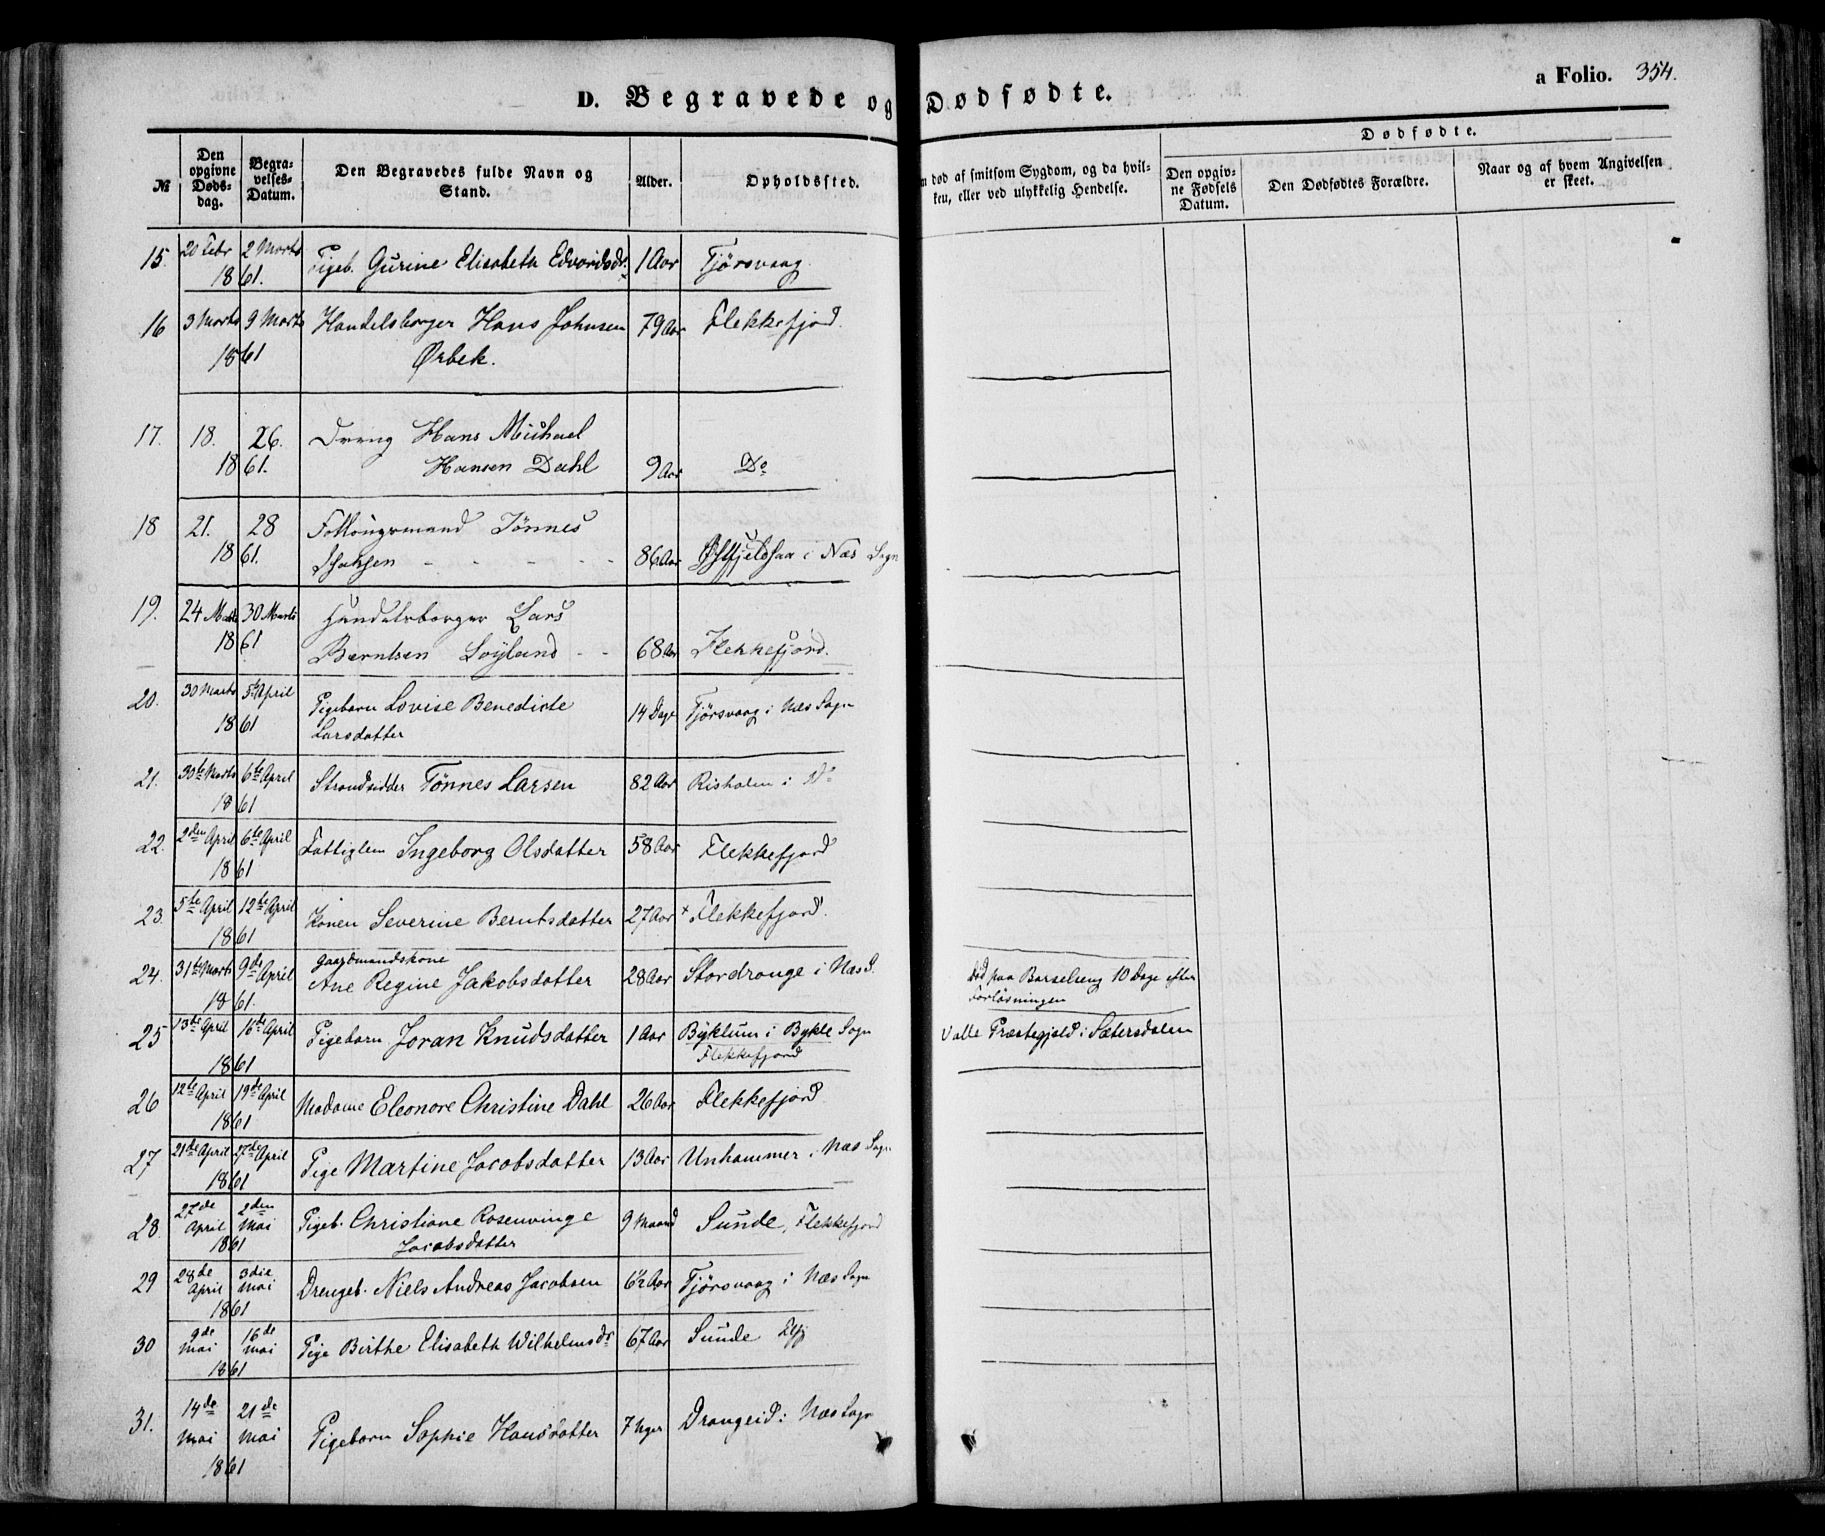 D. Begravede og Dødfødte.
a Folio. 354.
№
Den opgivne Døds-dag.
Begra-velses-Datum.
Den Begravedes fulde Navn og Stand.
Alder.
Opholdssted.
død af smitsom Sygdom, og da hvil-
ken, eller ved ulykkelig Hendelse.
Dødfødte.
Den opgiv-ne Fødsels Datum.
Den Dødfødtes Forældre.
Naar og af hvem Angivelsen er skeet.
15. 20 Febr 2 Marts Pigeb. Gurine Elisabeth Edvardsdr. 1 Aar Tjørsvaag.
1861.
16 3 Marts 9 Marts Handelsborger Hans Johnsen 79 Aar Flekkefjord.
1861 Ørbek.
17. 18. 26. Dreng Hans Michael
1861. Hansen Dahl 9 Aar Do
18 21. 28 Follougsmand Tönnes
1861. 86 Aar i Næs Sogn
19. 24 Marts 30 Marts Handelsborger Lars
1861 Berntsen Loyland 68 Aar Flekkefjord.
20. 30 Marts 5te April Pigebarn Lovise Benedicte 14 Dage Tjørsvaag i Næs Sogn
1861 Larsdatter
21. 30te Marts 6te April Strandsidder Tönnes Larsen 82 Aar Risholm i Do
1861
22. 2den April 6te April Fattiglem Ingeborg Olsdatter 58 Aar Flekkefjord
1861
23. 5te April 12te April Konen Severine Berntsdatter 27 Aar + Flekkefjord.
1861
24. 31te Marts 9de April Gaardmandskone
Ane Regine Jakobsdatter 28 Aar Stordrange i Næs S. Död paa Barselseng 10 Dage efter
1861. Forløsningen
25 13de April 16de April Pigebarn Joran Knudsdatter 1 Aar Byklum i Bykle Sogn Valle Præstegjeld i Sætersdalen
1861 Flekkefjord
26 12te April 19de April Madame Eleonore Christine Dahl 26 Aar Flekkefjord
1861
27 21de April 27de April Pige Martine Jacobsdatter 13 Aar Unhammer i Næs Sogn
1861
28. 27de April 2den Mai Pigeb. Christiane Rosenvinge 9 Maaned Sunde, Flekkefjord
1861 Jacobsdatter
29 28de April 3die Mai Drengeb. Niels Andreas Jacobsen 6½ Aar Tjørsvaag i Næs Sogn
1861
30 9de Mai 16de Mai Pige Birthe Elisabeth Wilhelmsdr 67 Aar Sunde Flfj
1861
31. 14de Mai 21de Mai Pigebarn Sophie Hansdatter 7 Uger Drangeid i Næs Sogn
1861